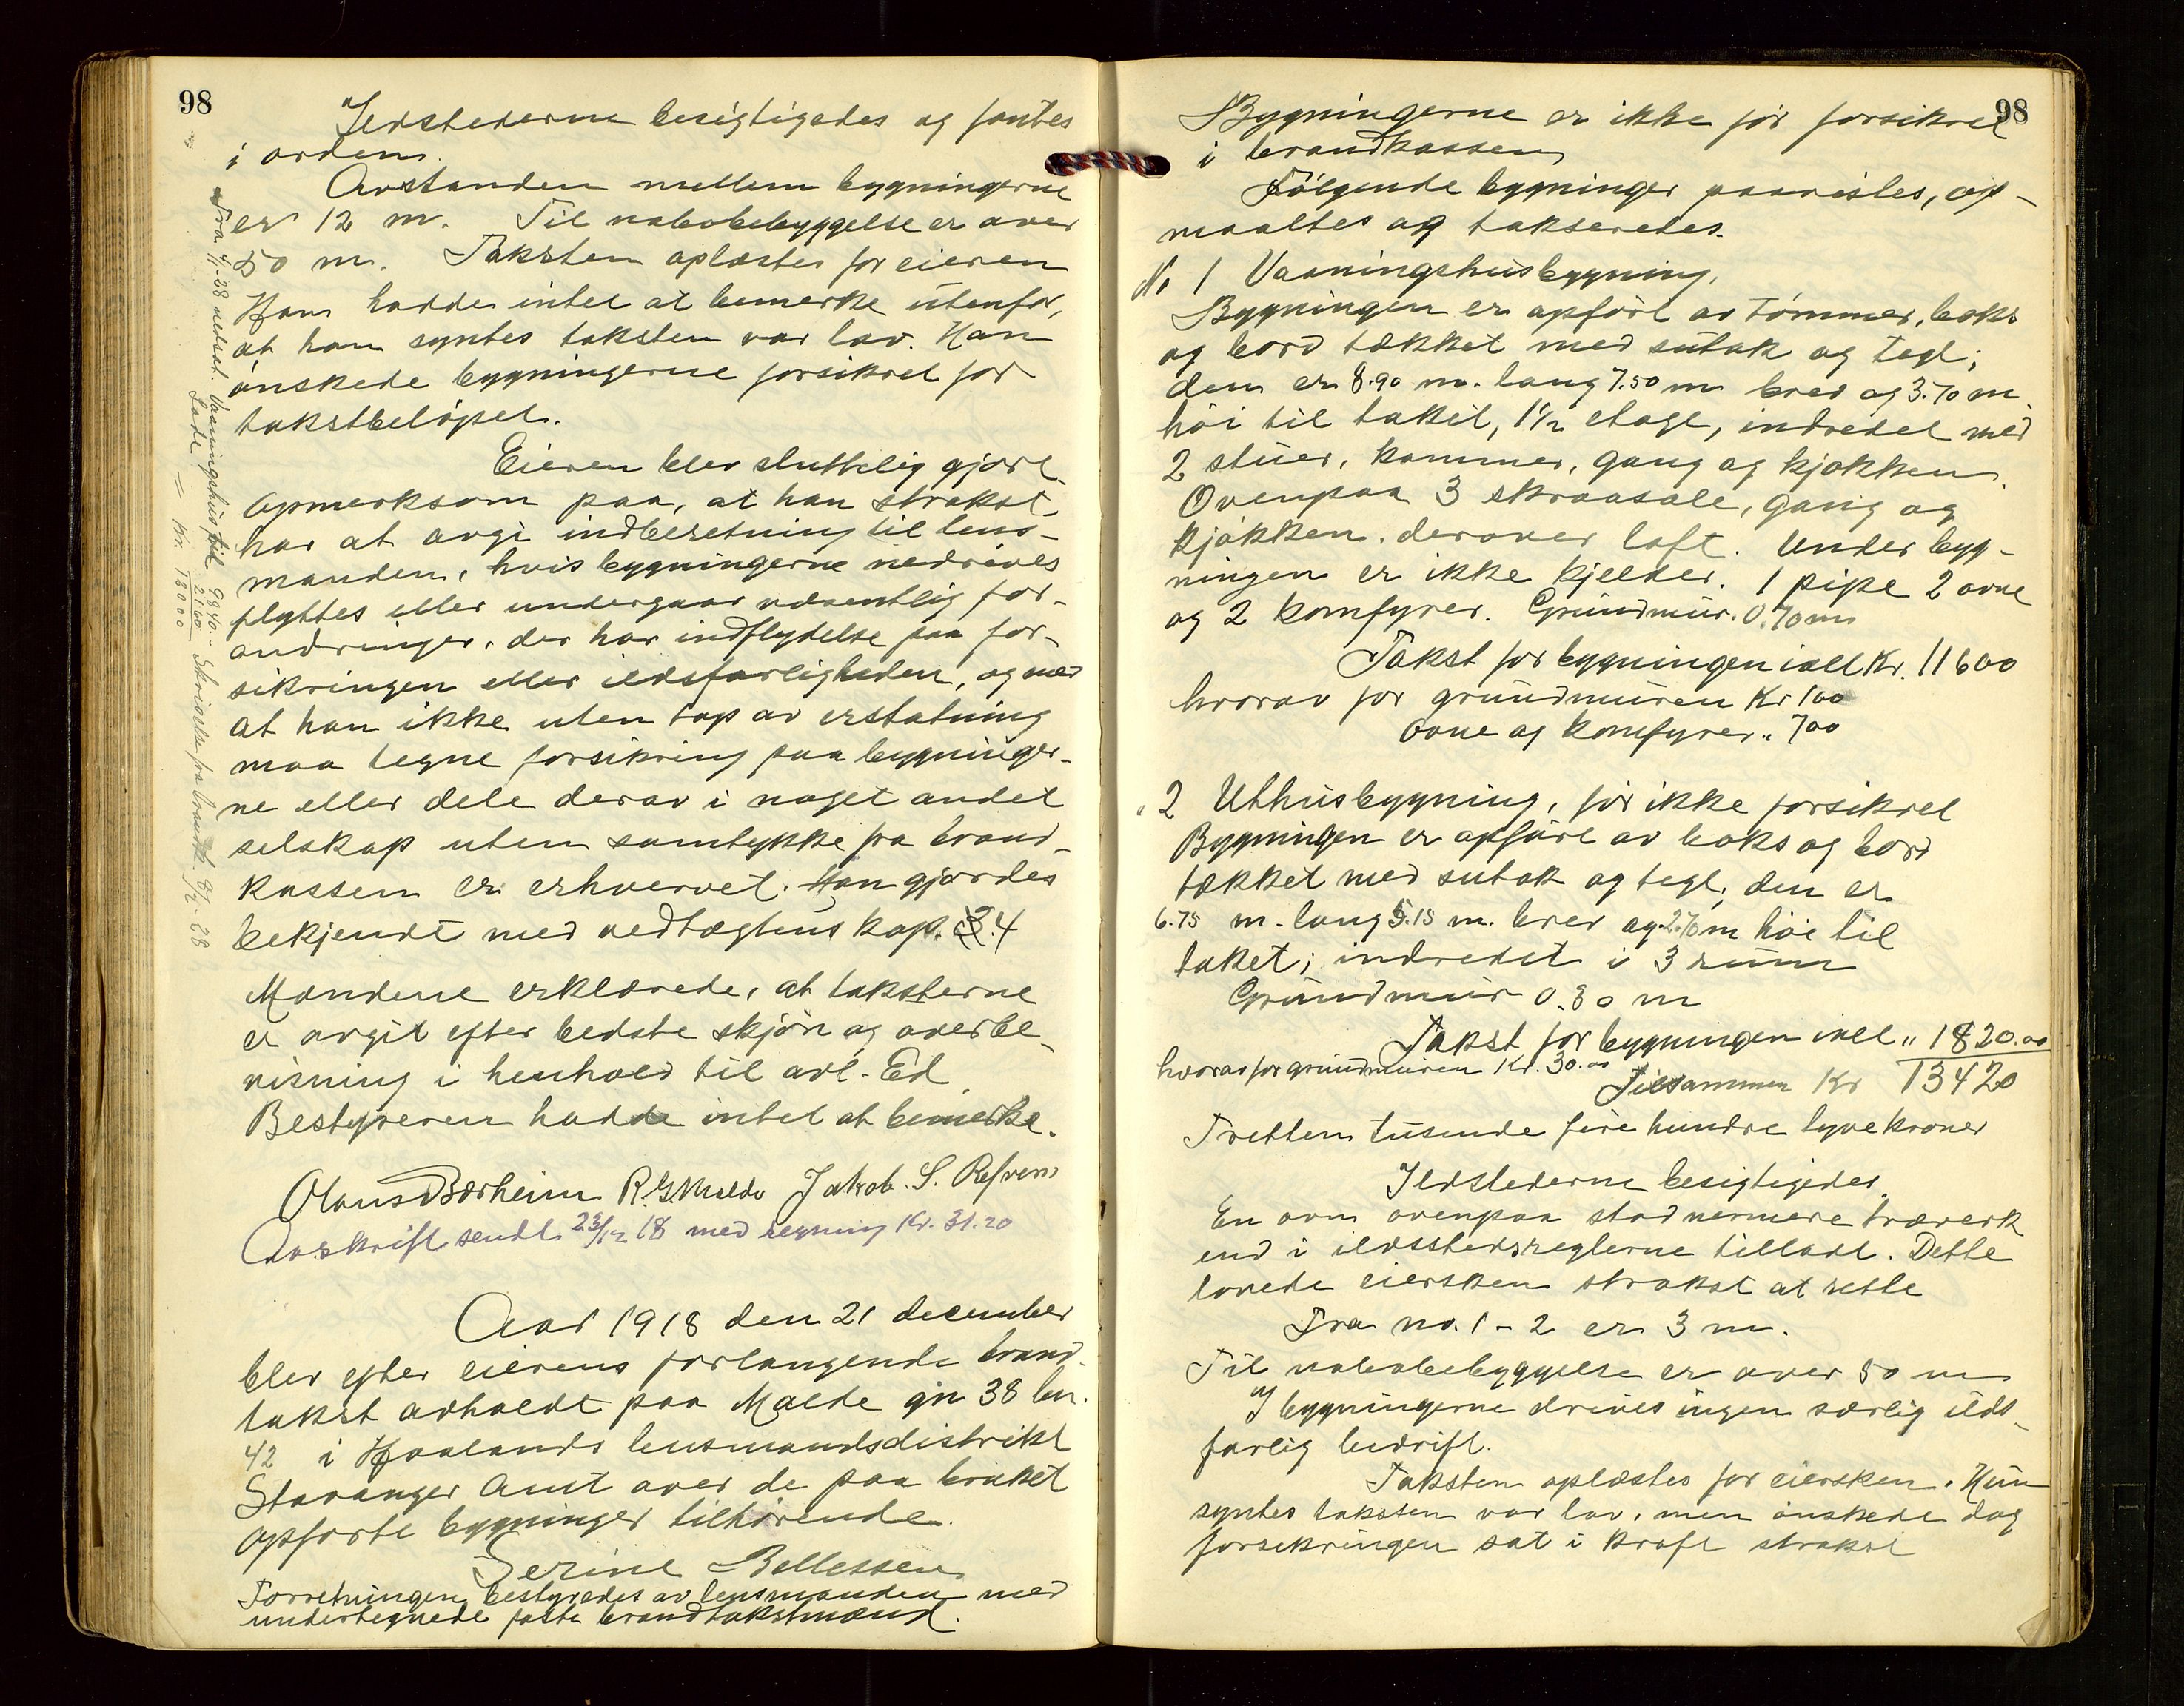 98
Ildstederne besigtigedes og fantes
i orden.
Avstanden mellem bygningerne
er 12 m. Til nabobebyggelse er over
50 m. Taksten oplæstes for eieren
Han hadde intet at bemerke utenfor,
at han syntes taksten var lav. Han
ønskede bygningerne forsikret for
takstbeløpet.
Eieren blev sluttelig gjort
opmerksom paa, at han strakst
har at avgi indberetning til lens-
manden, hvis bygningerne nedrives
flyttes eller undergaar væsentlig for-
andringer, der har indflydelse paa for-
sikringen eller ildsfarligheden, og med
at han ikke uten tap av erstatning
maa tegne forsikring paa bygninger-
ne eller dele derav i noget andet
selskap uten samtykke fra brand-
kassen er erhvervet. Han gjordes
bekjendt med vedtægtens kap. 4
Mændene erklærede, at taksterne
er avgit efter bedste skjøn og overbe-
visning i henhold til avl. Ed
Bestyreren hadde intet at bemerke.
Olaus Børheim R. G. Malde Jakob. S. Refven
Avskrift sendt 23/12 18 med regning Kr. 31.20
Aar 1918 den 21 december
blev efter eierens forlangende brand-
takst avholdt paa Malde gn 38 bn.
42 i Haalands lensmandsdistrikt
Stavanger Amt over de paa bruket
opførte bygninger tilhørende.
Serine Bellessen
Forretningen bestyredes av lensmanden med
undertegnede faste brandtakstmænd.
Fra 4/1-38 nedsat. Vaaningshus til 9840.- Skrivelse fra Brandk. 8/2-28
Lade = 2160
Kr. 12000
98
Bygningerne er ikke før forsikret
i brandkassen
Følgende bygninger paavistes, op-
maaltes og takseredes.
No 1 Vaaningshusbygning.
Bygningen er opført av tømmer, boks
og bord tækket med sutak og tegl;
den er 8.90 m. lang 7.50 m bred og 3.70 m
høi til taket, 1 1/2 etage, indredet med
2 stuer, kammer, gang og kjøkken.
Ovenpaa 3 skraasale, gang og
kjøkken. derover loft. Under byg-
ningen er ikke kjelder. 1 pipe 2 ovne
og 2 komfyrer. Grundmur. 0.70 m
Takst for bygningen ialt Kr. 11600
hvorav for grundmuren Kr 100
ovne og komfyrer " 700
" 2 Uthusbygning, før ikke forsikret
Bygningen er opført av boks og bord
tækket med sutak og tegl; den er
6.75 m. lang 5.15 m. bred og 2.70 m høi til
taket; indredet i 3 rum
Grundmur 0.30 m
Takst for bygningen ialt " 1820.00
hvorav for grundmuren Kr. 30.00
Tilsammen Kr 13420
Tretten tusende fire hundre tyve kroner
Ildstederne besigtigedes.
En ovn ovenpaa stod nermere træverk
end i ildsstedsreglerne tilladt. Dette
lovede eiersken strakst at rette
Fra no. 1 - 2 er 3 m.
Til nabobebyggelse er over 50 m
I bygningerne drives ingen særlig ilds-
farlig bedrift.
Taksten oplæstes for eiersken. Hun
syntes taksten var lav, men ønskede dog
forsikringen sat i kraft strakst